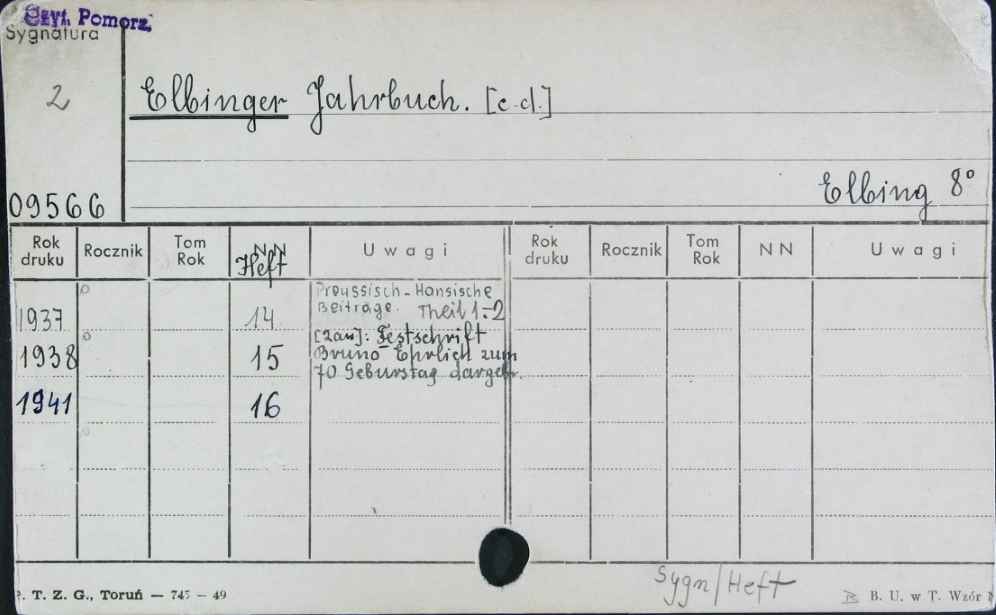 Czyt. Pomorz.
Sygnatura
2
Elbinger Jahrbuch. [c.d.]
Elbing 8°
09566
Rok druku Rocznik Tom Rok NN Heft Uwagi Rok druku Rocznik Tom Rok NN Uwagi
1937 14 Preussisch-Hansische Beiträge. Theil 1-2
1938 15 Festschrift Bruno Ehrlich zum 70 Geburstag dargebr.
1941 16
Sygn/Heft
. T. Z. G., Toruń — 745 — 49
B. U. w T. Wzór